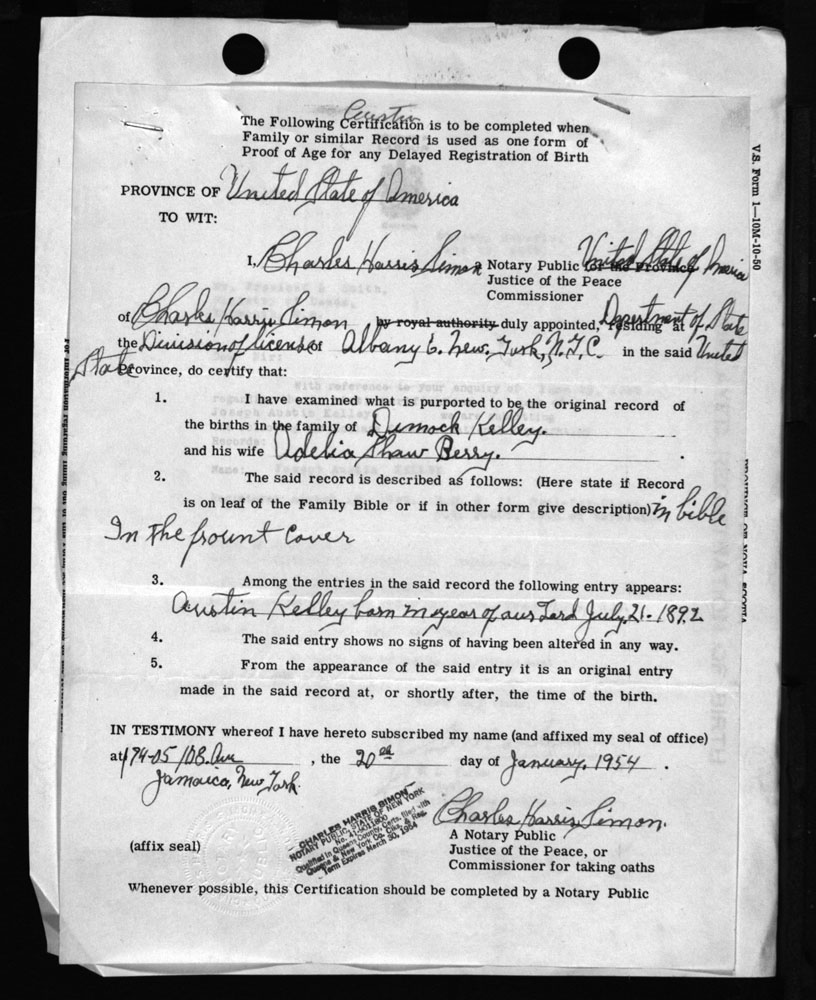 Austin
The Following Certification is to be completed when
Family or similar Record is used as one form of
Proof of Age for any Delayed Registration of Birth
PROVINCE OF United State of America
TO WIT:
I, Charles Harris Simon a Notary Public for the Province United State of America
Justice of the Peace
Commissioner
of Charles Harris Simon by royal authority duly appointed, residing at Department of State
the Division of licenses of Albany 6. New. York, N.Y.C. in the said United
State Province, do certify that:
1. I have examined what is purported to be the original record of
the births in the family of Dimock Kelley.
and his wife Adelia Shaw Berry.
2. The said record is described as follows: (Here state if Record
is on leaf of the Family Bible or if in other form give description) in bible
In the frount Cover
3. Among the entries in the said record the following entry appears:
Austin Kelley born in year of our Lord July. 21 - 1892
4. The said entry shows no signs of having been altered in any way.
5. From the appearance of the said entry it is an original entry
made in the said record at, or shortly after, the time of the birth.
IN TESTIMONY whereof I have hereto subscribed my name (and affixed my seal of office)
at 174-05 108. Ave , the 20 day of January. 1954 .
Jamaica, New York.
Charles Harris Simon.
(affix seal)
A Notary Public
Justice of the Peace, or
Commissioner for taking oaths
CHARLES HARRIS SIMON
NOTARY PUBLIC, STATE OF NEW YORK
Qualified in Queens County, Certs. filed with
Queens & New York Co. Clks. & Reg.
Term Expires March 30, 1954
Whenever possible, this Certification should be completed by a Notary Public
V.S. Form 1—10M-10-50